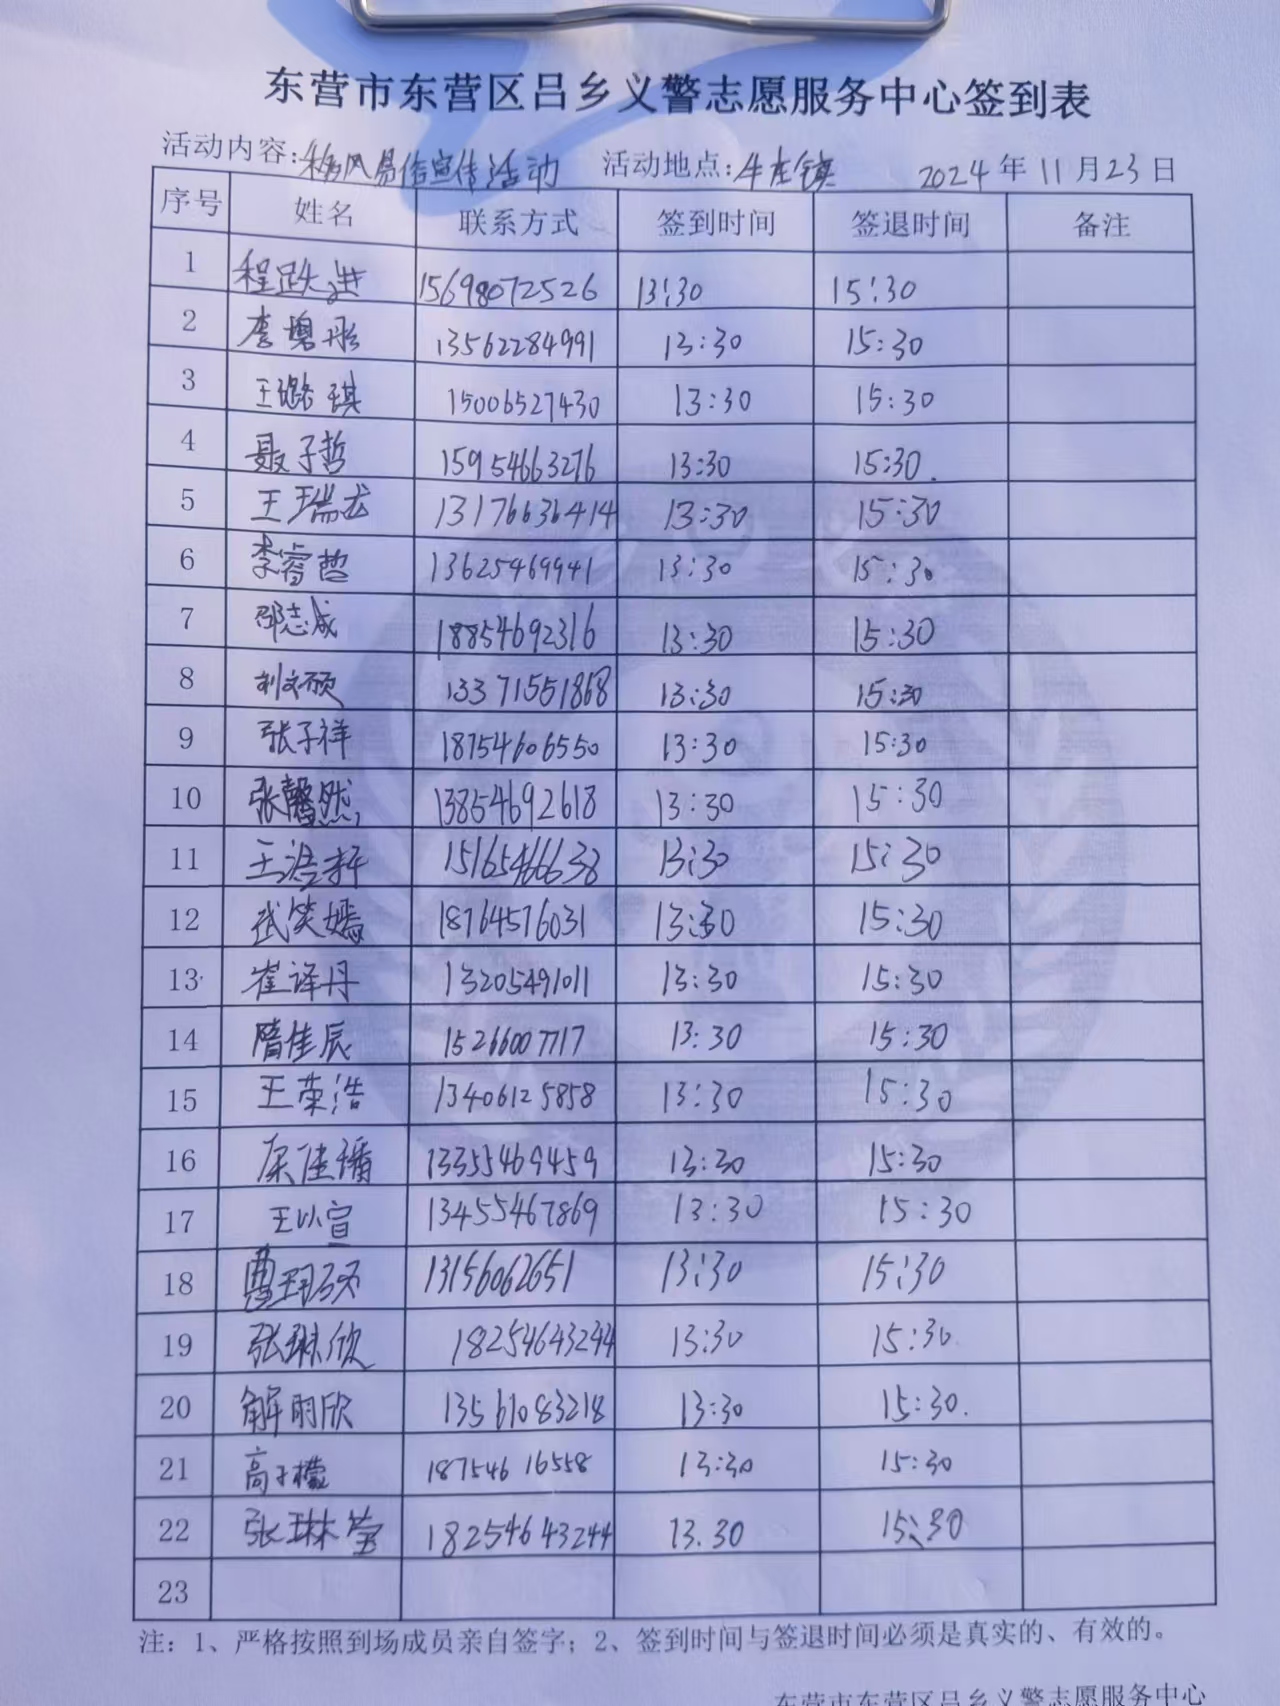 东营市东营区吕乡义警志愿服务中心签到表
活动内容:移风易俗宣传活动 活动地点:牛庄镇 2024年11月23日
序号 姓名 联系方式 签到时间 签退时间 备注
1 程跃进 15698072526 13:30 15:30
2 李增彤 13562284991 13:30 15:30
3 王璐琪 15006527430 13:30 15:30
4 聂子哲 15954663276 13:30 15:30.
5 王瑞龙 13176636414 13:30 15:30
6 李睿哲 13625469941 13:30 15:30
7 邵志成 18854692316 13:30 15:30
8 刘文硕 13371551868 13:30 15:30
9 张子祥 18754606550 13:30 15:30
10 张馨然 13854692618 13:30 15:30
11 王浩轩 15165466638 13:30 15:30
12 武笑嫣 18764576031 13:30 15:30
13 崔译丹 13205491011 13:30 15:30
14 隋佳辰 15266007717 13:30 15:30
15 王荣浩 13406125858 13:30 15:30
16 13355469459 13:30 15:30
17 王以宣 13455467869 13:30 15:30
18 13156062651 13:30 15:30
19 张琳欣 18254643244 13:30 15:30
20 解雨欣 13561083218 13:30 15:30.
21 高子檬 18754616558 13:30 15:30
22 张琳莹 18254643244 13.30 15:30
23
注：1、严格按照到场成员亲自签字；2、签到时间与签退时间必须是真实的、有效的。
东营市东营区吕乡义警志愿服务中心